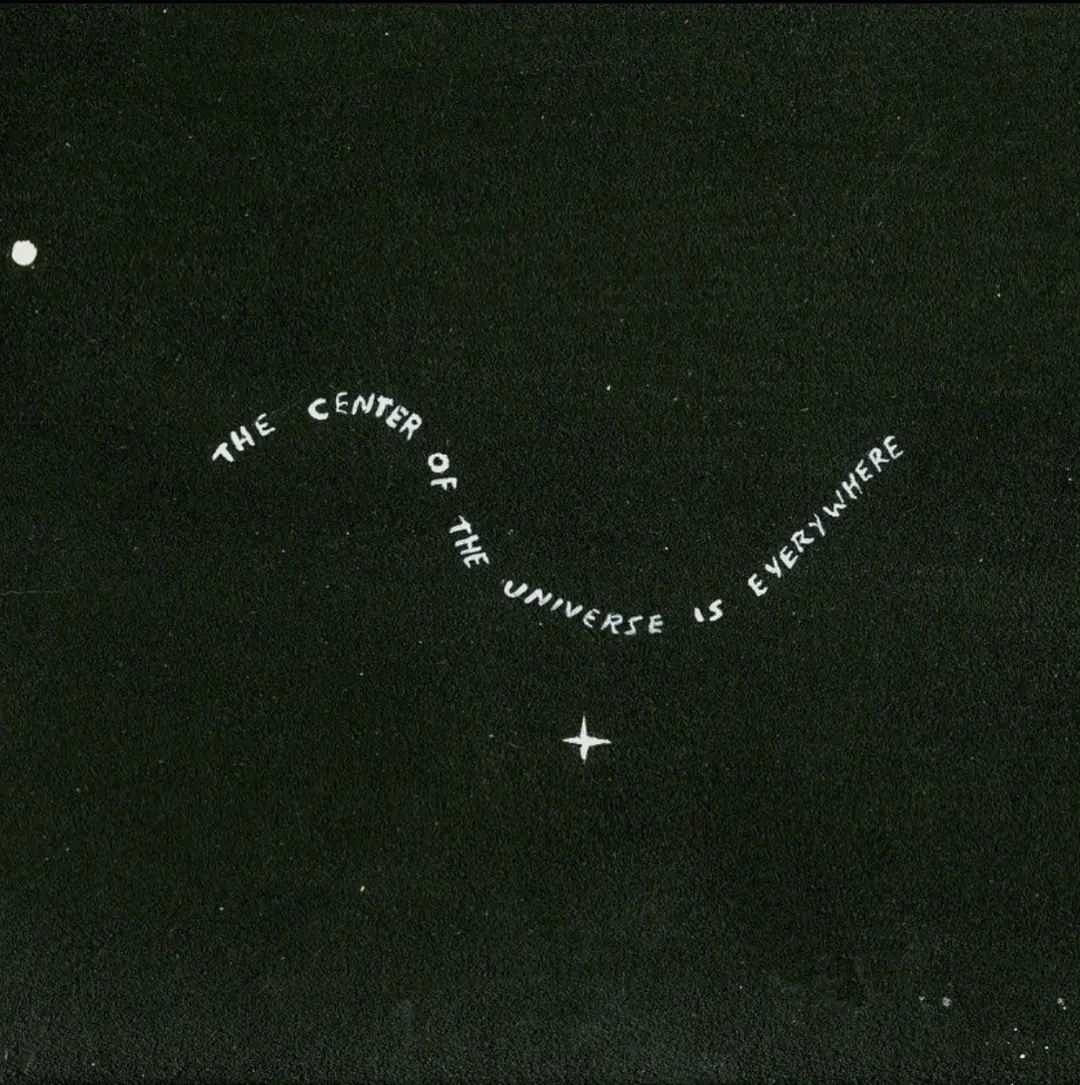 THE CENTER OF THE UNIVERSE IS EVERYWHERE